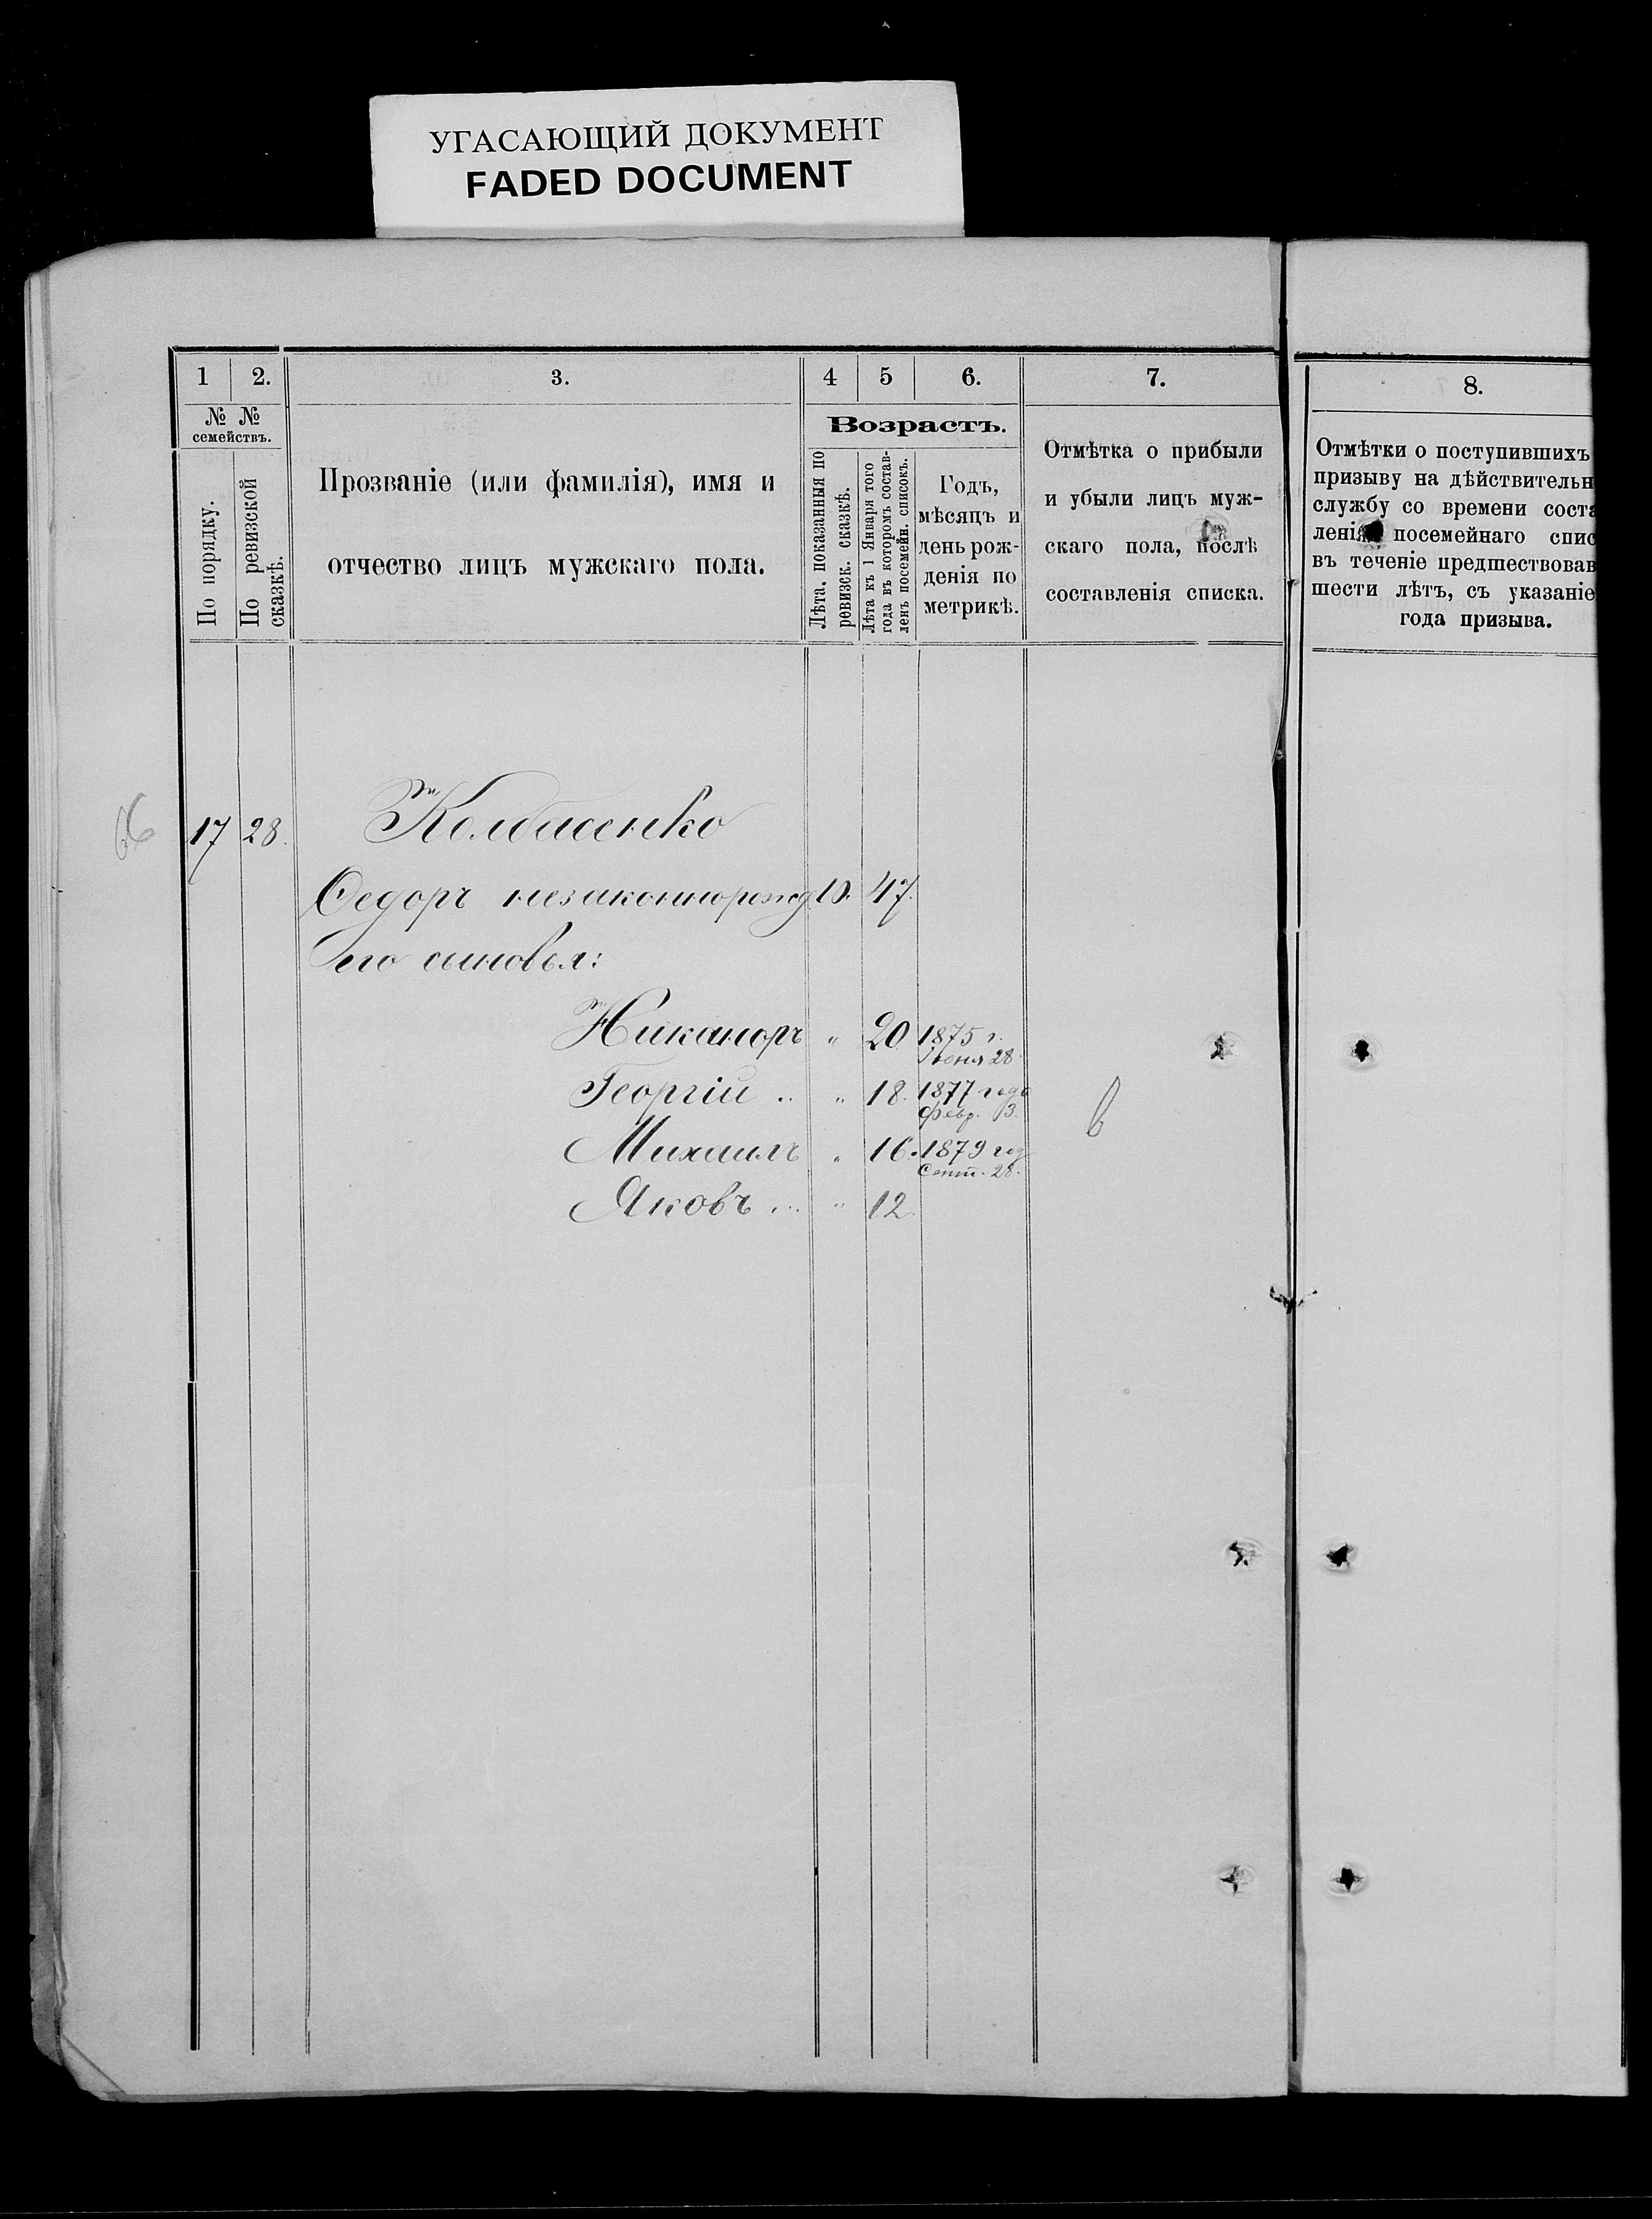 УГАСАЮЩИЙ ДОКУМЕНТ
FADED DOCUMENT
1 2. 3. 4 5 6. 7. 8.
№ №
семействъ.
По порядку.
По ревизской
сказкѣ.
Прозваніе (или фамилія), имя и
отчество лицъ мужскаго пола.
Возрастъ.
Лѣта, показанныя по
ревизск. сказкѣ.
Лѣта къ 1 Января того
года въ которомъ состав-
ленъ посемейн. списокъ.
Годъ,
мѣсяцъ и
день рож-
денія по
метрикѣ.
Отмѣтка о прибыли
и убыли лицъ муж-
скаго пола, послѣ
составленія списка.
Отмѣтки о поступившихъ
призыву на дѣйствительн
службу со времени соста
ленія посемейнаго спис
въ теченіе предшествовав
шести лѣтъ, съ указаніе
года призыва.
17 28. Колбасенко
Федоръ незаконнорожд 10. 47.
его сыновья:
Никаноръ " 20 1875 г.
Іюня 28.
Георгій .. " 18. 1877 года
Февр. 3.
Михаилъ " 16. 1879 год
Сент. 28.
Яковъ ... " 12.